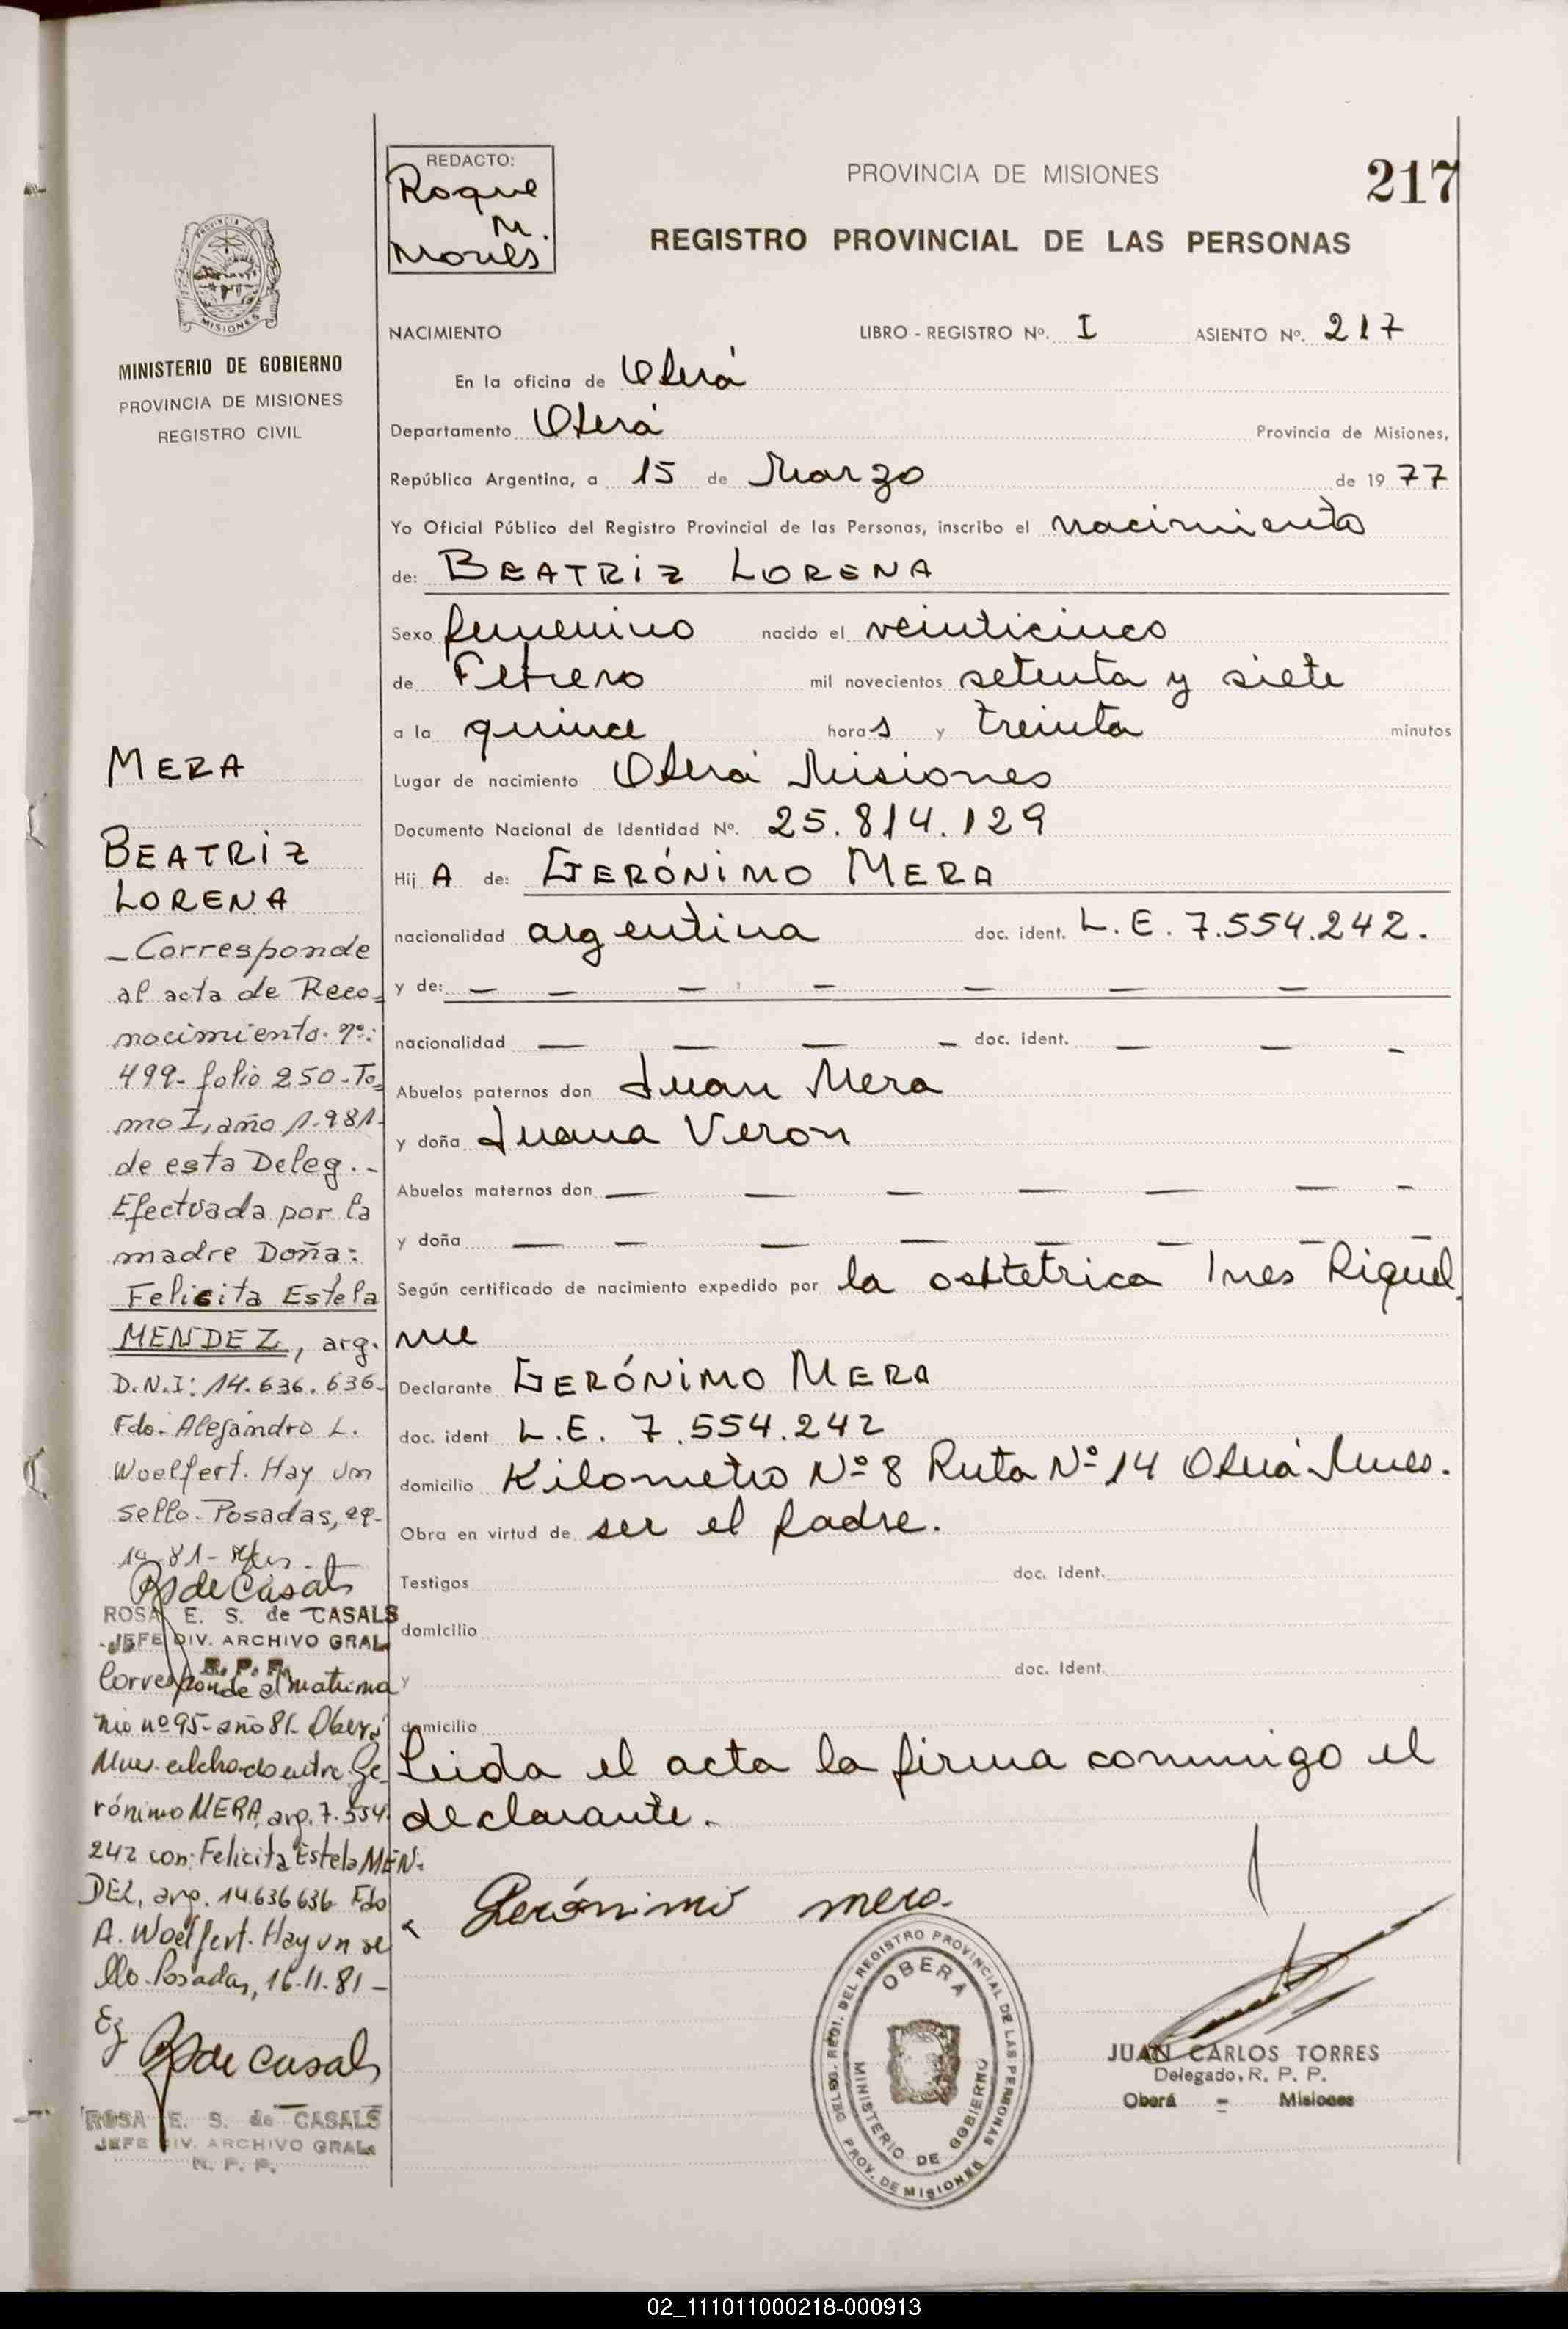 REDACTO:
Roque
M.
PROVINCIA DE MISIONES
217
REGISTRO PROVINCIAL DE LAS PERSONAS
NACIMIENTO LIBRO - REGISTRO Nº. I ASIENTO Nº. 217
En la oficina de Oberá
Departamento Oberá Provincia de Misiones,
República Argentina, a 15 de Marzo de 1977
Yo Oficial Público del Registro Provincial de las Personas, inscribo el nacimiento
de: BEATRIZ LORENA
Sexo femenino nacido el veinticinco
de Febrero mil novecientos setenta y siete
a la quince horas y treinta minutos
Lugar de nacimiento Oberá Misiones
Documento Nacional de Identidad Nº. 25.814.129
Hij A de: GERÓNIMO MERA
nacionalidad argentina doc. ident. L.E. 7.554.242.
y de: — — — — — — —
nacionalidad — — — — doc. ident. — — -
Abuelos paternos don Juan Mera
y doña Juana Veron
Abuelos maternos don — — — — — — -
y doña — — — — — — — —
Según certificado de nacimiento expedido por la obstetrica Ines Riquel
me
Declarante GERÓNIMO MERA
doc. ident L.E. 7.554.242
domicilio Kilometro Nº 8 Ruta Nº 14 Oberá Mnes.
Obra en virtud de ser el padre.
Testigos doc. ident.
domicilio
y doc. Ident.
domicilio
Leida el acta la firma conmigo el
declarante.
Gerónimo mera.
DELEG. REGI. DEL REGISTRO PROVINCIAL DE LAS PERSONAS
OBERA
MINISTERIO DE GOBIERNO
PROV. DE MISIONES
JUAN CARLOS TORRES
Delegado, R. P. P.
Oberá - Misiones
PROVINCIA DE
MISIONES
MINISTERIO DE GOBIERNO
PROVINCIA DE MISIONES
REGISTRO CIVIL
MERA
BEATRIZ
LORENA
- Corresponde
al acta de Reco-
nocimiento. nº:
499- folio 250-To-
mo I, año 1.981-
de esta Deleg..-
Efectuada por la
madre Doña:
Felicita Estela
MENDEZ, arg.
D.N.I: 14.636.636-
Fdo. Alejandro L.
Woelfert. Hay un
sello. Posadas,
R S de Casals
ROSA E. S. de CASALS
JEFE DIV. ARCHIVO GRAL.
R. P. P.
Corresponde al matrimo
nio nº 95- año 81- Oberá
Mnes. entre Ge-
rónimo MERA, arg. 7.554.
242 con: Felicita Estela MEN-
DEZ, arg. 14.636636 Fdo
A. Woelfert. Hay un se
llo. Posadas, 16-11-81-
R S de Casals
ROSA E. S. de CASALS
JEFE DIV. ARCHIVO GRAL.
R. P. P.
02_111011000218-000913